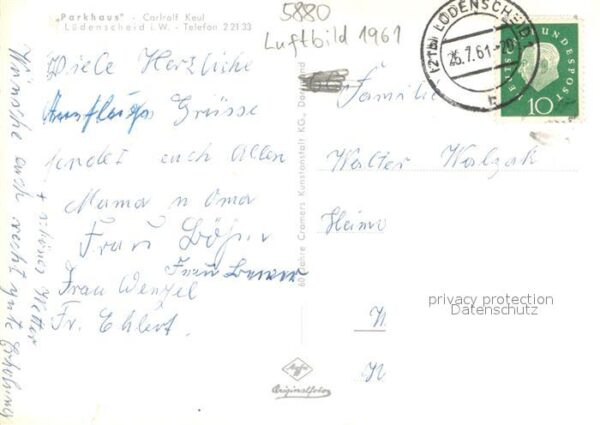 „Parkhaus" - Carlralf Keul
Lüdenscheid i. W. - Telefon 2 21 33
5880
Luftbild 1961
(21b) LÜDENSCHEID 1
25.7.61
DEUTSCHE BUNDESPOST
10
Viele Herzliche
Ausflugs Grüsse
sendet euch Allen
Mama u Oma
Frau
Frau
Frau Wenzel
Fr. Ehlert.
Wünsche auch recht gute Erholung
+ schönes Wetter
60 Jahre Cramers Kunstanstalt KG., Dortmund
Familie
Walter Walzak
privacy protection
Datenschutz
Agfa
Originalfoto